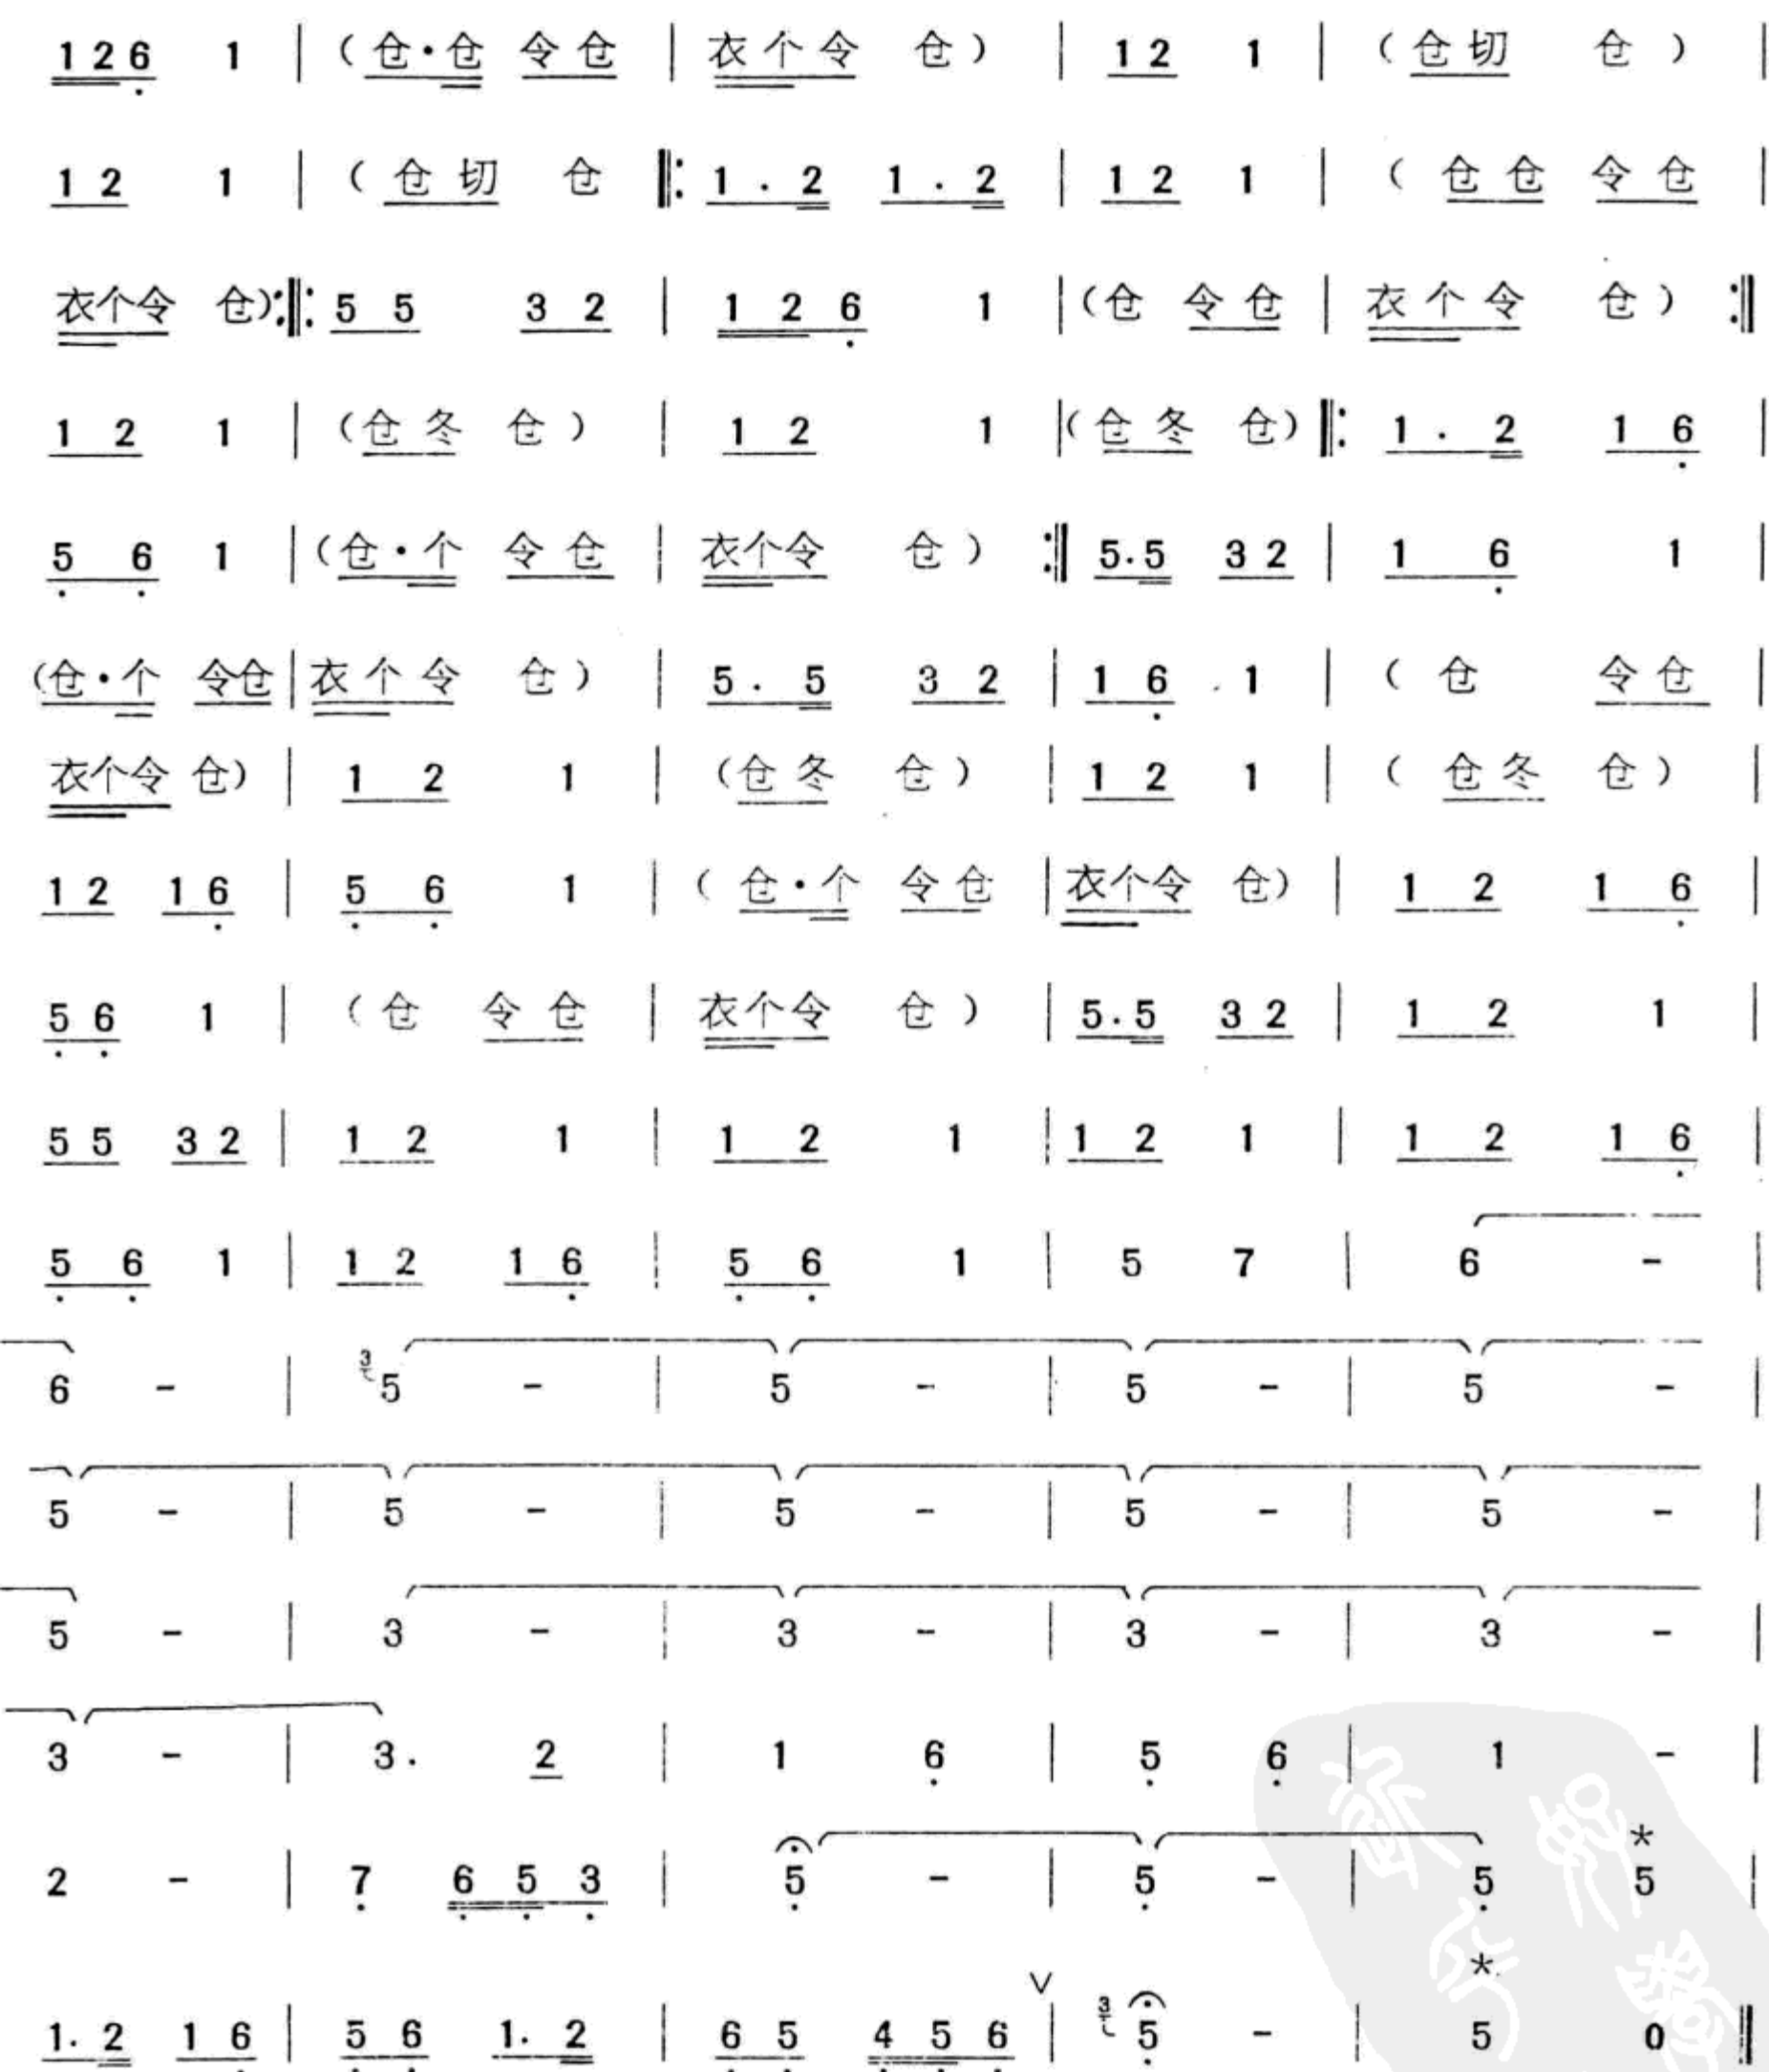 1 2 6 1 | (仓·仓 令仓 | 衣个令 仓) | 1 2 1 | (仓切 仓) |
1 2 1 | (仓切 仓 ‖: 1 . 2 1 . 2 | 1 2 1 | (仓仓 令仓 |
衣个令 仓):‖: 5 5 3 2 | 1 2 6 1 | (仓 令仓 | 衣个令 仓) :‖
1 2 1 | (仓冬 仓) | 1 2 1 | (仓冬 仓) ‖: 1 . 2 1 6 |
5 6 1 | (仓·个 令仓 | 衣个令 仓) :‖ 5.5 3 2 | 1 6 1 |
(仓·个 令仓 | 衣个令 仓) | 5 . 5 3 2 | 1 6 1 | (仓 令仓 |
衣个令 仓) | 1 2 1 | (仓冬 仓) | 1 2 1 | (仓冬 仓) |
1 2 1 6 | 5 6 1 | (仓·个 令仓 | 衣个令 仓) | 1 2 1 6 |
5 6 1 | (仓 令仓 | 衣个令 仓) | 5.5 3 2 | 1 2 1 |
5 5 3 2 | 1 2 1 | 1 2 1 | 1 2 1 | 1 2 1 6 |
5 6 1 | 1 2 1 6 | 5 6 1 | 5 7 | 6 - |
6 - | 3 5 - | 5 - | 5 - | 5 - |
5 - | 5 - | 5 - | 5 - | 5 - |
5 - | 3 - | 3 - | 3 - | 3 - |
3 - | 3 . 2 | 1 6 | 5 6 | 1 - |
2 - | 7 6 5 3 | 5 - | 5 - | 5 * 5 |
1. 2 1 6 | 5 6 1. 2 | 6 5 4 5 6 ∨ | 3 5 - | * 5 0 ‖